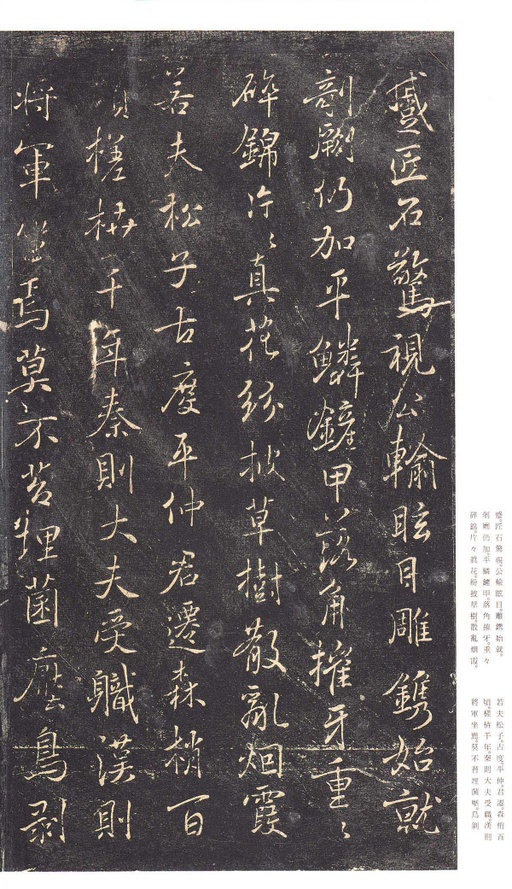 蹙匠石驚視公輸眩目雕鐫始就
剞劂仍加平鱗鏟甲落角摧牙重〻
碎錦片〻真花紛披草樹散亂烟霞
若夫松子古度平仲君遷森梢百
頃槎枿千年秦則大夫受職漢則
將軍坐焉莫不苔埋菌壓鳥剥
蹙匠石驚視公輸眩目雕鐫始就
剞劂仍加平鱗鏟甲落角摧牙重々
碎錦片々眞花紛披草樹散亂烟霞
若夫松子古度平仲君遷森梢百
頃槎枿千年秦則大夫受職漢則
將軍坐焉莫不苔埋菌壓鳥剥